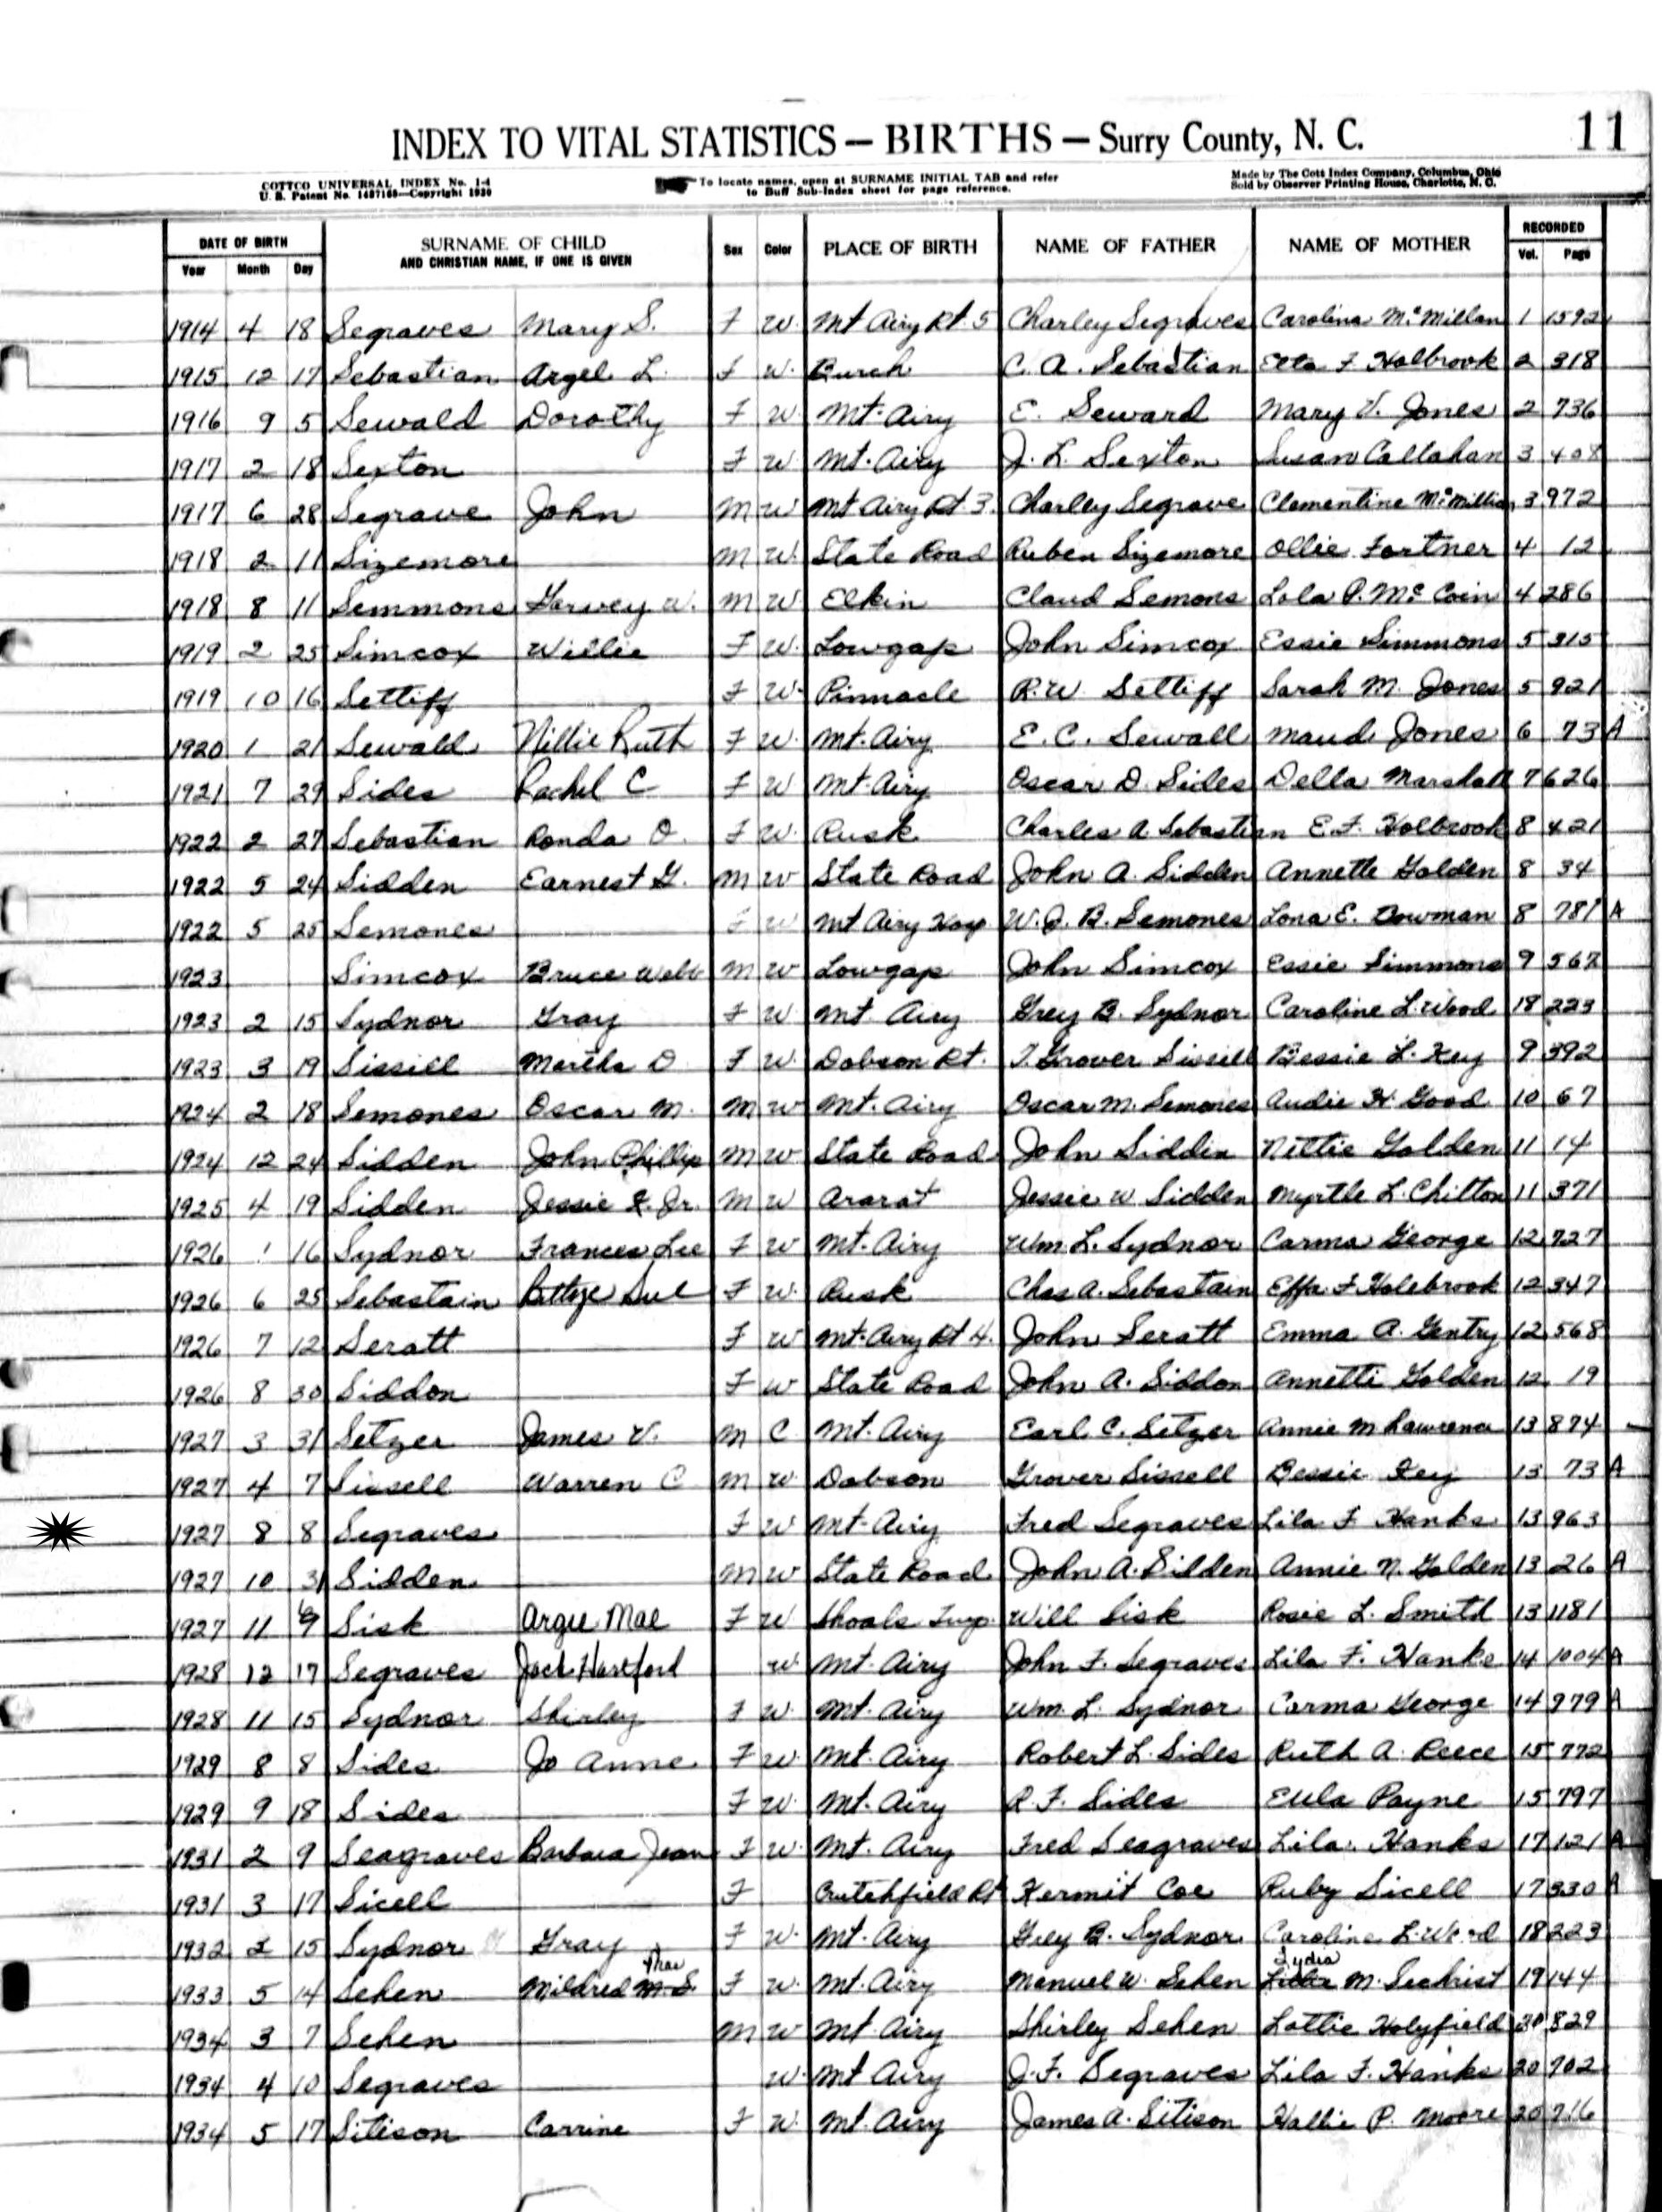 11
INDEX TO VITAL STATISTICS — BIRTHS — Surry County, N. C.
COTTCO UNIVERSAL INDEX No. 1-4
U. S. Patent No. 1487165—Copyright 1920
To locate names, open at SURNAME INITIAL TAB and refer
to Buff Sub-Index sheet for page reference.
Made by The Cott Index Company, Columbus, Ohio
Sold by Observer Printing House, Charlotte, N. C.
DATE OF BIRTH SURNAME OF CHILD Sex Color PLACE OF BIRTH NAME OF FATHER NAME OF MOTHER RECORDED
Year Month Day AND CHRISTIAN NAME, IF ONE IS GIVEN Vol. Page
1914 4 18 Segraves Mary S. F W. Mt Airy Rt. 5 Charley Segraves Carolina McMillan 1 1592
1915 12 17 Sebastian Argel L. F W. Burch C. A. Sebastian Etta F Holbrook 2 318
1916 9 5 Sewald Dorothy F W. Mt. Airy E. Seward Mary V. Jones 2 736
1917 2 18 Sexton F W. Mt. Airy J. L. Sexton Susan Callahan 3 408
1917 6 28 Segrave John M W Mt Airy Rt 3. Charley Segrave Clementine McMillian 3 972
1918 2 11 Sizemore M W. State Road Ruben Sizemore Ollie Fortner 4 12
1918 8 11 Semmons Harvey W. M W. Elkin Claud Semons Lola P. McCoin 4 286
1919 2 25 Simcox Willie F W. Lowgap John Simcox Essie Simmons 5 315
1919 10 16 Settiff F W. Pinnacle R. W. Settiff Sarah M. Jones 5 921
1920 1 21 Sewald Nillie Ruth F W. Mt. Airy E. C. Sewall Maud Jones 6 73 A
1921 7 29 Sides Rachel C F W Mt. Airy Oscar D. Sides Della Marshall 7 626
1922 2 27 Sebastian Ronda O. F W. Rusk Charles A Sebastian E. F. Holbrook 8 421
1922 5 24 Sidden Earnest G. M W State Road John A. Sidden Annette Golden 8 34
1922 5 25 Semones F W Mt Airy Hosp W. J. B. Semones Lona E. Bowman 8 781 A
1923 Simcox Bruce Webb M W Lowgap John Simcox Essie Simmons 9 567
1923 2 15 Sydnor Gray F W. Mt. Airy Grey B. Sydnor Caroline L. Wood 18 223
1923 3 19 Sissill Martha D F W. Dobson Rt. T. Grover Sissill Bessie L. Key 9 392
1924 2 18 Semones Oscar M. M W Mt. Airy Oscar M. Semones Audie H. Good 10 67
1924 12 24 Sidden John Phillip M W State Road John Siddin Nettie Golden 11 14
1925 4 19 Sidden Jessie F. Jr. M W Ararat Jessie W Sidden Myrtle L. Chilton 11 371
1926 1 16 Sydnor Frances Lee F W Mt. Airy Wm. L. Sydnor Carma George 12 727
1926 6 25 Sebastain Sue F W. Rusk Chas A. Sebastain Effa F Holebrook 12 347
1926 7 12 Seratt F W Mt. Airy Rt 4. John Seratt Emma A. Gentry 12 568
1926 8 30 Siddon F W State Road John A. Siddon Annetti Golden 12 19
1927 3 31 Setzer James V. M C Mt. Airy Earl C. Setzer Annie M Lawrence 13 874
1927 4 7 Sissell Warren C M W. Dobson Grover Sissell Bessie Key 13 73 A
1927 8 8 Segraves F W Mt. Airy Fred Segraves Lila F. Hanks 13 963
1927 10 31 Sidden M W State Road John A. Sidden Annie N. Golden 13 26 A
1927 11 9 Sisk Argie Mae F W Shoals Twp. Will Sisk Rosie L. Smith 13 1181
1928 12 17 Segraves Jack Hartford W. Mt. Airy John F. Segraves Lila F. Hanks 14 1004 A
1928 11 15 Sydnor Shirley F W. Mt. Airy Wm. L. Sydnor Carma George 14 979 A
1929 8 8 Sides Jo Anne F W. Mt. Airy Robert L. Sides Ruth A. Reece 15 772
1929 9 18 Sides F W. Mt. Airy R. F. Sides Eula Payne 15 797
1931 2 9 Seagraves Barbara Jean F W. Mt. Airy Fred Seagraves Lila Hanks 17 121 A
1931 3 17 Sicell F Crutchfield Rt Kermit Coe Ruby Sicell 17 330 A
1932 2 15 Sydnor Gray F W. Mt. Airy Grey B. Sydnor Caroline L. Wood 18 223
1933 5 14 Sehen Mildred M. S. Mae F W. Mt. Airy Manuel W. Sehen Lydia M. Sechrist 19 144
1934 3 7 Sehen M W Mt. Airy Shirley Sehen Lottie Holyfield 20 829
1934 4 10 Segraves W. Mt Airy J. F. Segraves Lila F. Hanks 20 902
1934 5 17 Sitison Carrine F W. Mt. Airy James A. Sitison Hallie P. Moore 20 916